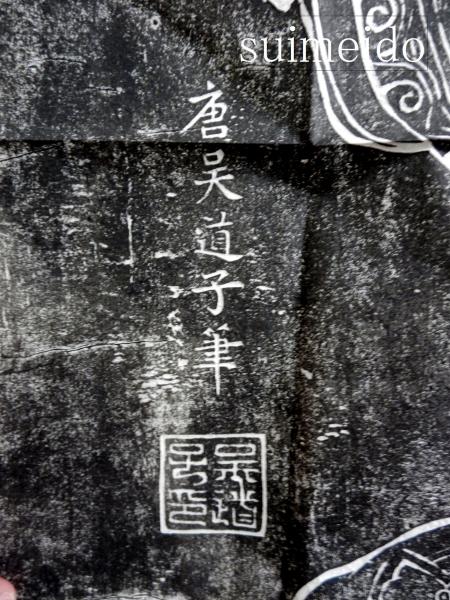 suimeido
唐吴道子筆
吴道
子印